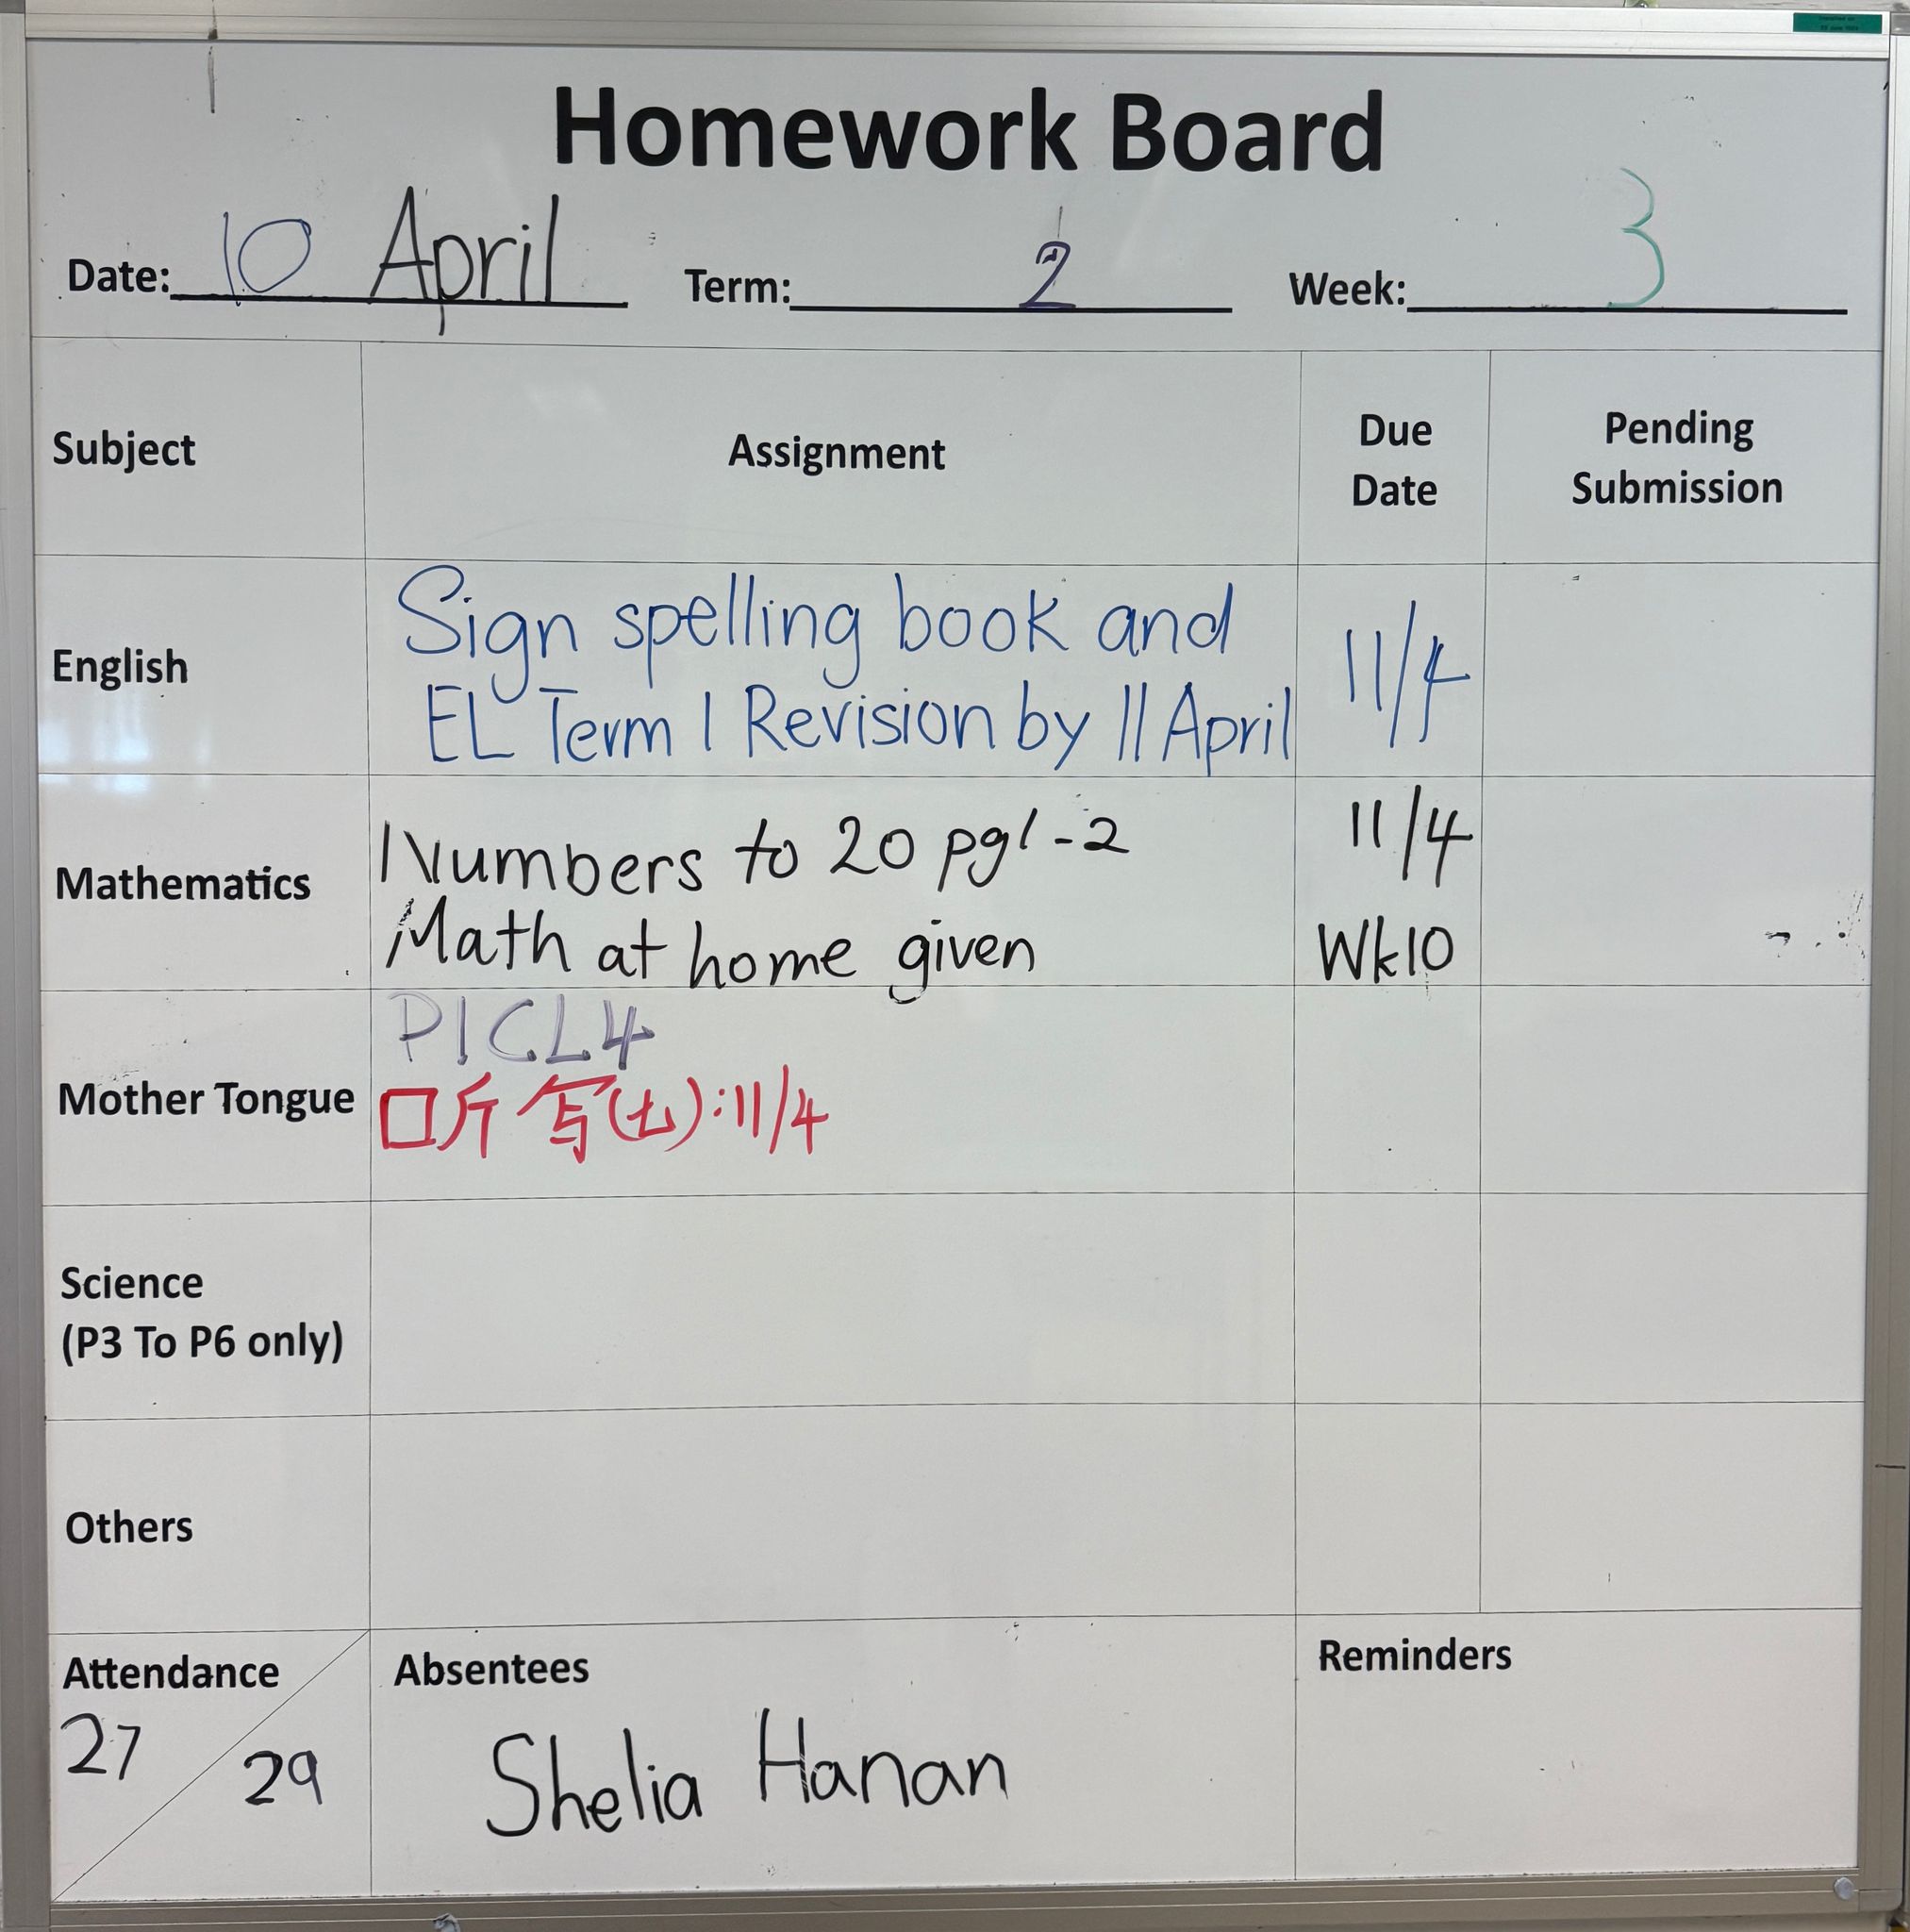 Homework Board
Date: 10 April Term: 2 Week: 3
Subject Assignment Due Date Pending Submission
English
Sign spelling book and
EL Term 1 Revision by 11 April
11/4
Mathematics
Numbers to 20 pg 1-2 11/4
Math at home given Wk10
Mother Tongue
P1CL4
听写(七):11/4
Science
(P3 To P6 only)
Others
Attendance
27
29
Absentees
Shelia Hanan
Reminders